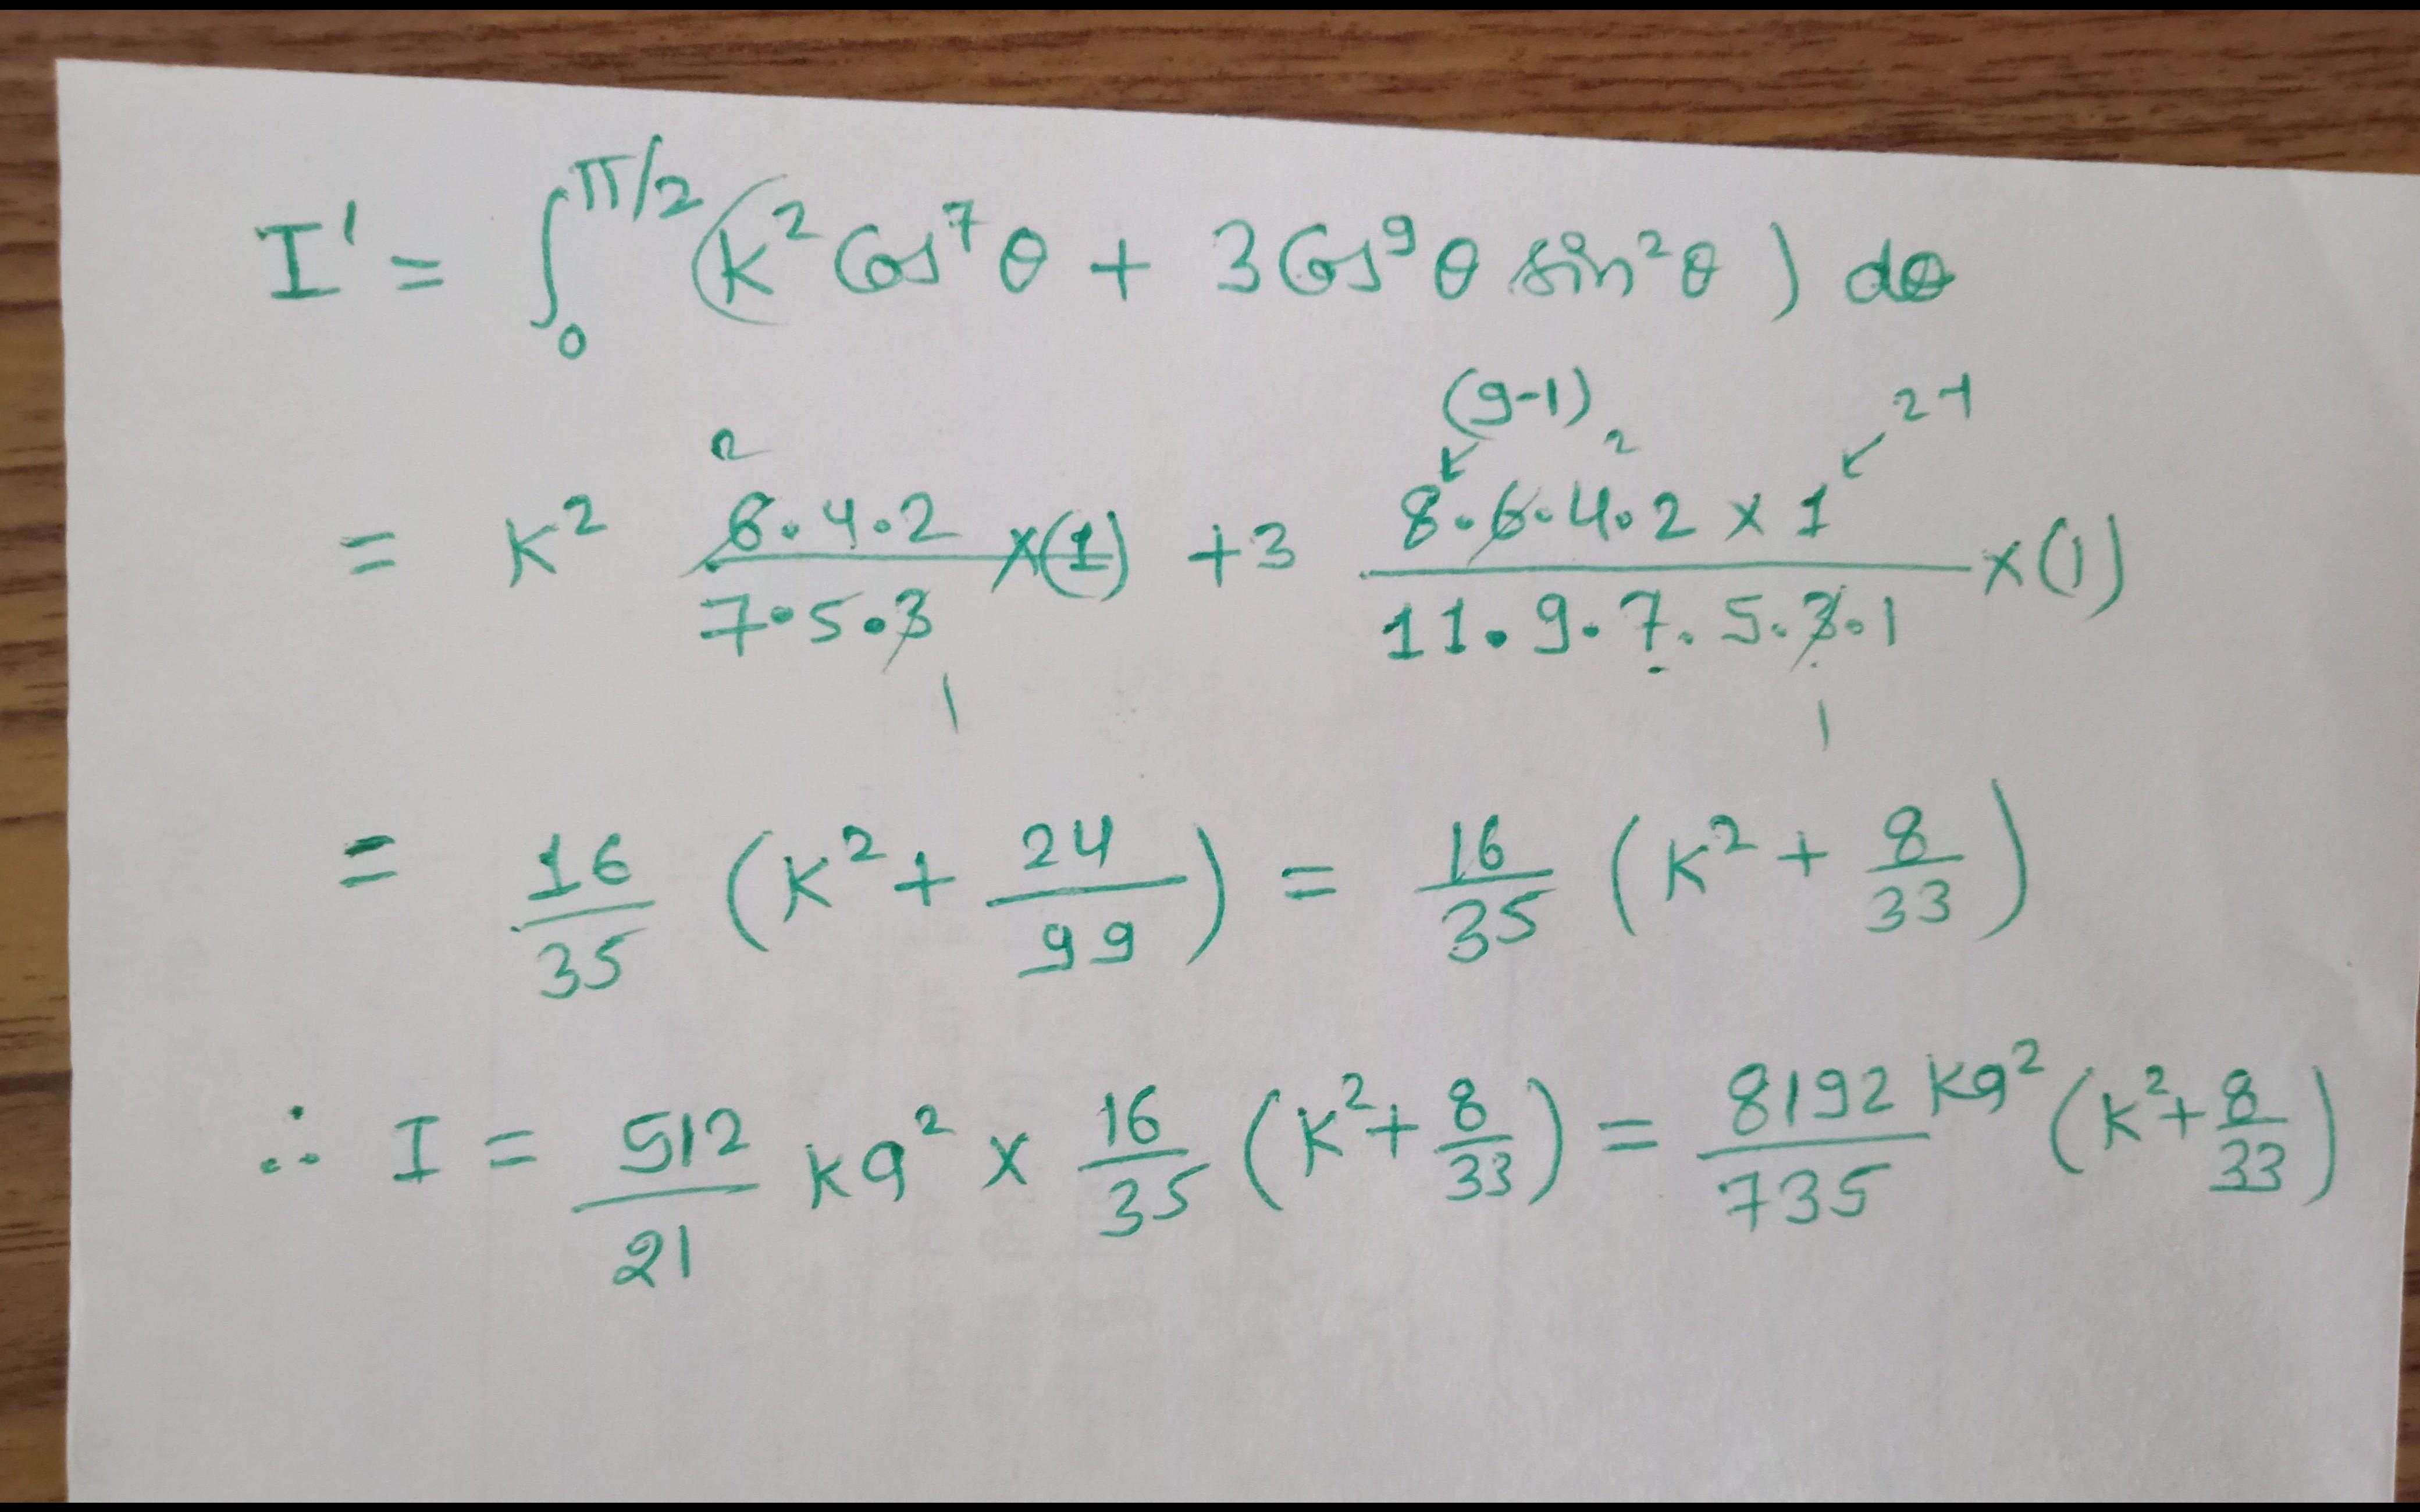 I' = ∫₀^{π/2} (K² Cos⁷ θ + 3 Cos⁹ θ sin² θ) dθ
(9-1) 2-1
2 2
= K² (6·4·2)/(7·5·3) ×(1) + 3 (8·6·4·2 × 1)/(11·9·7·5·3·1) ×(1)
1 1
= 16/35 (K² + 24/99) = 16/35 (K² + 8/33)
∴ I = 512/21 ka² × 16/35 (K² + 8/33) = 8192/735 ka² (K² + 8/33)